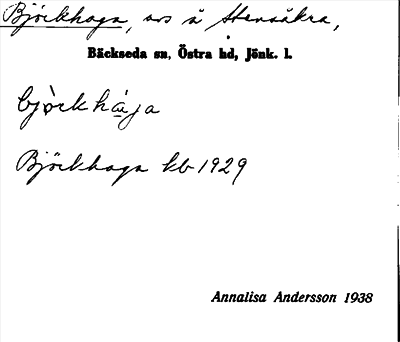 Björkhaga, avs å Stensåkra,
Bäckseda sn, Östra hd, Jönk. l.
bjòrkhà̱ja
Björkhaga kb 1929
Annalisa Andersson 1938